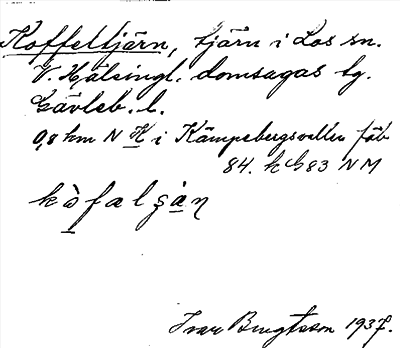 Koffeltjärn, tjärn i Los sn.
V. Hälsingl. domsagas tg.
Gävleb. l.
0,8 km N K i Kämpebergsvallen fäb
84. k G83 NM
kòfalşàn
Ivar Bengtsson 1937.